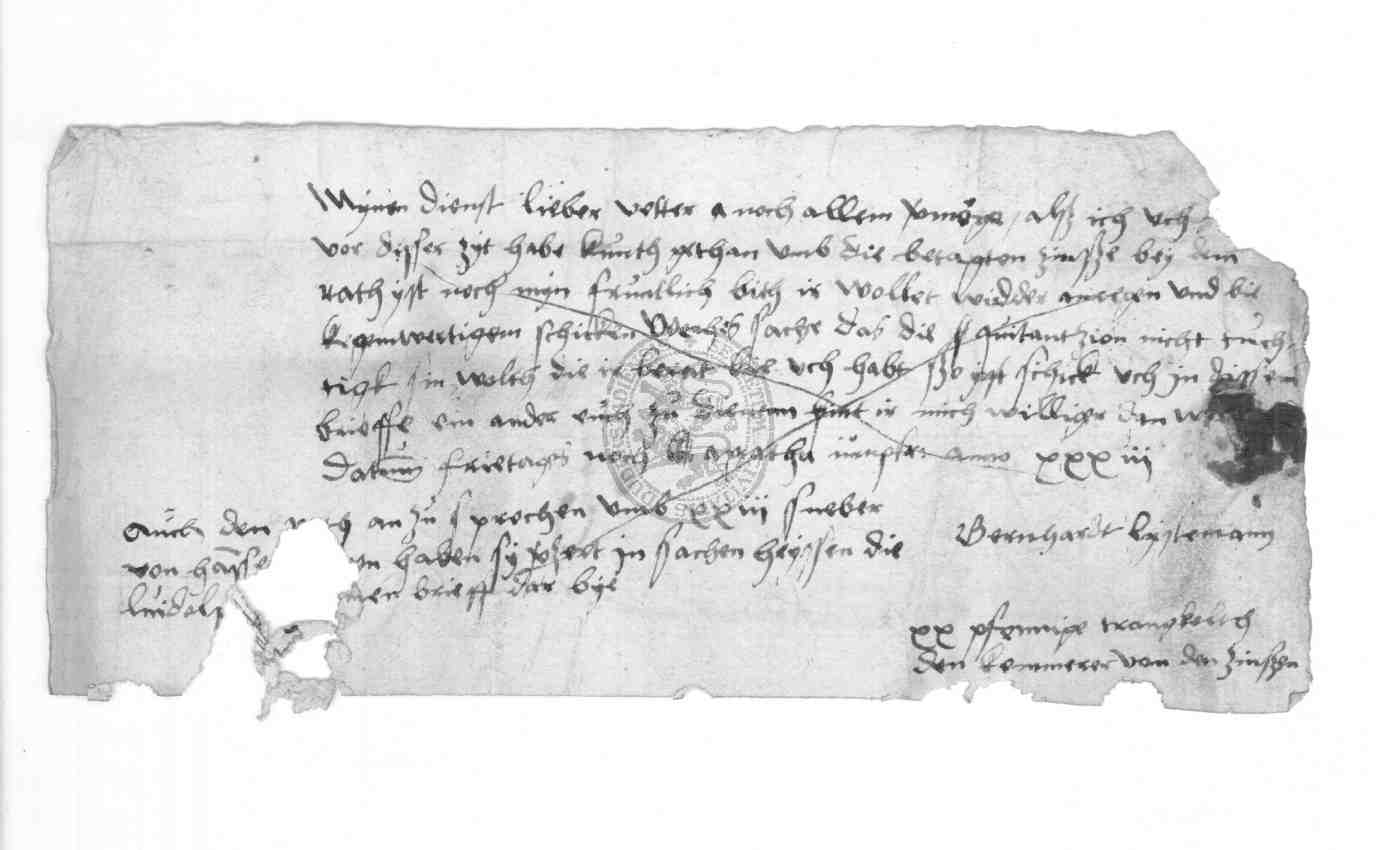 Mynen dienst lieber vetter noch allem vmöge, alß ich uch
vor disser zyt habe kunth gethan vmb die betagten zinsße bey dem
rath yst noch myn fruntlich bith ir wollet widder anregen vnd bie
kegenwertigem schicken Werhß sache das die quitantzion nicht tuch-
tigk sin wolth die ir bereit bie uch habt ßo yst schick uch in dissem
brieffe ein ander euch zu dienenn fint ir mich williger dan
Datum frietags noch agatha anno xxxiii
Auch den an zu sprechen vmb xxiii sneber
von haben sy in sachen heyssen die
brieff dar bye
Bernhardt lystemann
xx pfennige
den kemmerer von den zinsßen